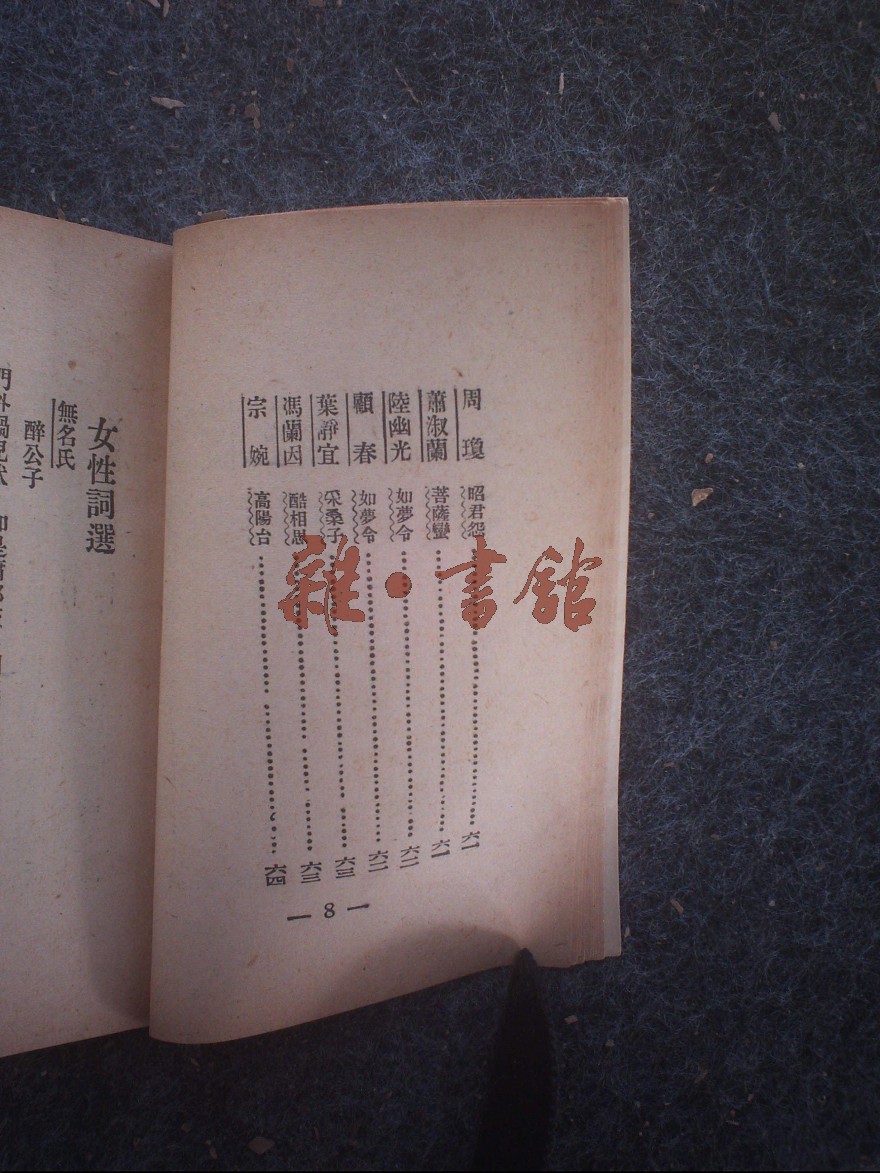 周瓊 昭君怨 六一
蕭淑蘭 菩薩蠻 六一
陸幽光 如夢令 六二
顧春 如夢令 六二
葉靜宜 采桑子 六三
馮蘭因 酷相思 六三
宗婉 高陽台 六四
— 8 —
女性詞選
無名氏
醉公子
雜·書館